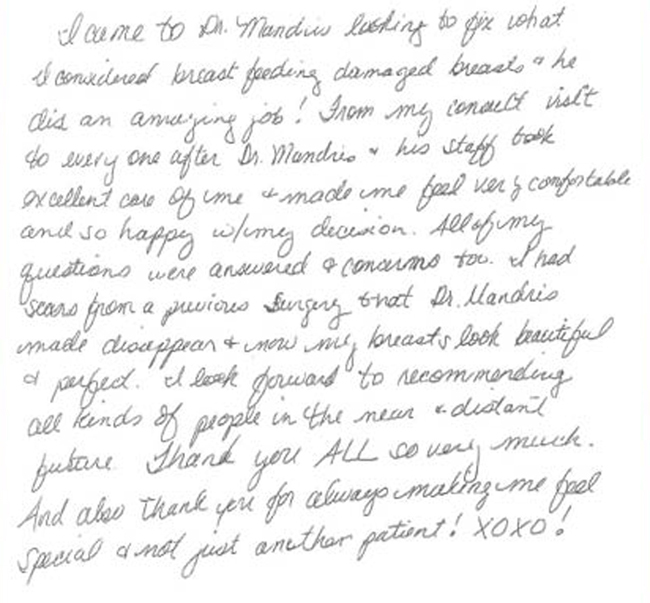 I came to Dr. Mandris looking to fix what
I considered breast feeding damaged breasts & he
did an amazing job! From my consult visit
to every one after Dr. Mandris & his staff took
excellent care of me & made me feel very comfortable
and so happy w/my decision. All of my
questions were answered & concerns too. I had
scars from a previous surgery that Dr. Mandris
made disappear & now my breasts look beautiful
& perfect. I look forward to recommending
all kinds of people in the near & distant
future. Thank you ALL so very much.
And also thank you for always making me feel
special & not just another patient! XOXO!